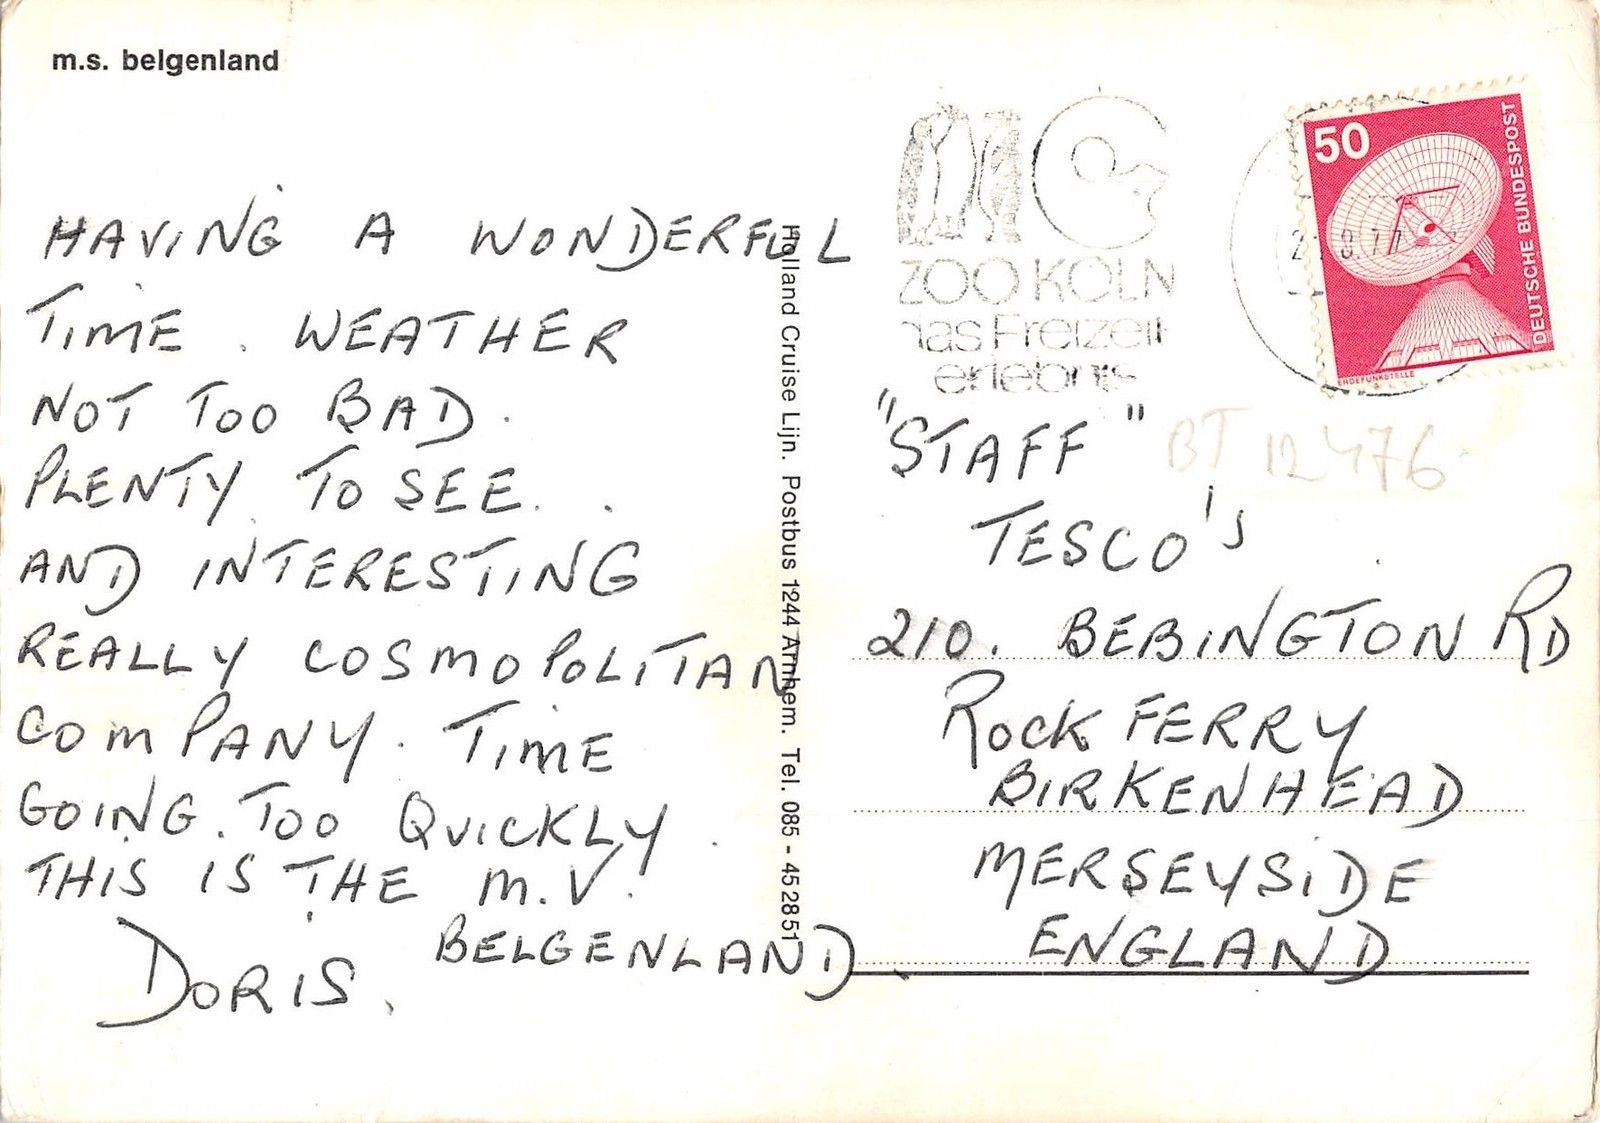 m.s. belgenland
HAVING A WONDERFUL
TIME. WEATHER
NOT TOO BAD.
PLENTY TO SEE.
AND INTERESTING
REALLY COSMOPOLITAN
COMPANY. TIME
GOING. TOO QUICKLY.
THIS IS THE M.V.
BELGENLAND.
DORIS.
Holland Cruise Lijn. Postbus 1244 Arnhem. Tel. 085 - 45 28 51
ZOO KÖLN
das Freizeit
erlebnis
50
DEUTSCHE BUNDESPOST
ERDEFUNKSTELLE
8.77
"STAFF"
BT 12476
TESCO'S
210. BEBINGTON RD
ROCK FERRY
BIRKENHEAD
MERSEYSIDE
ENGLAND